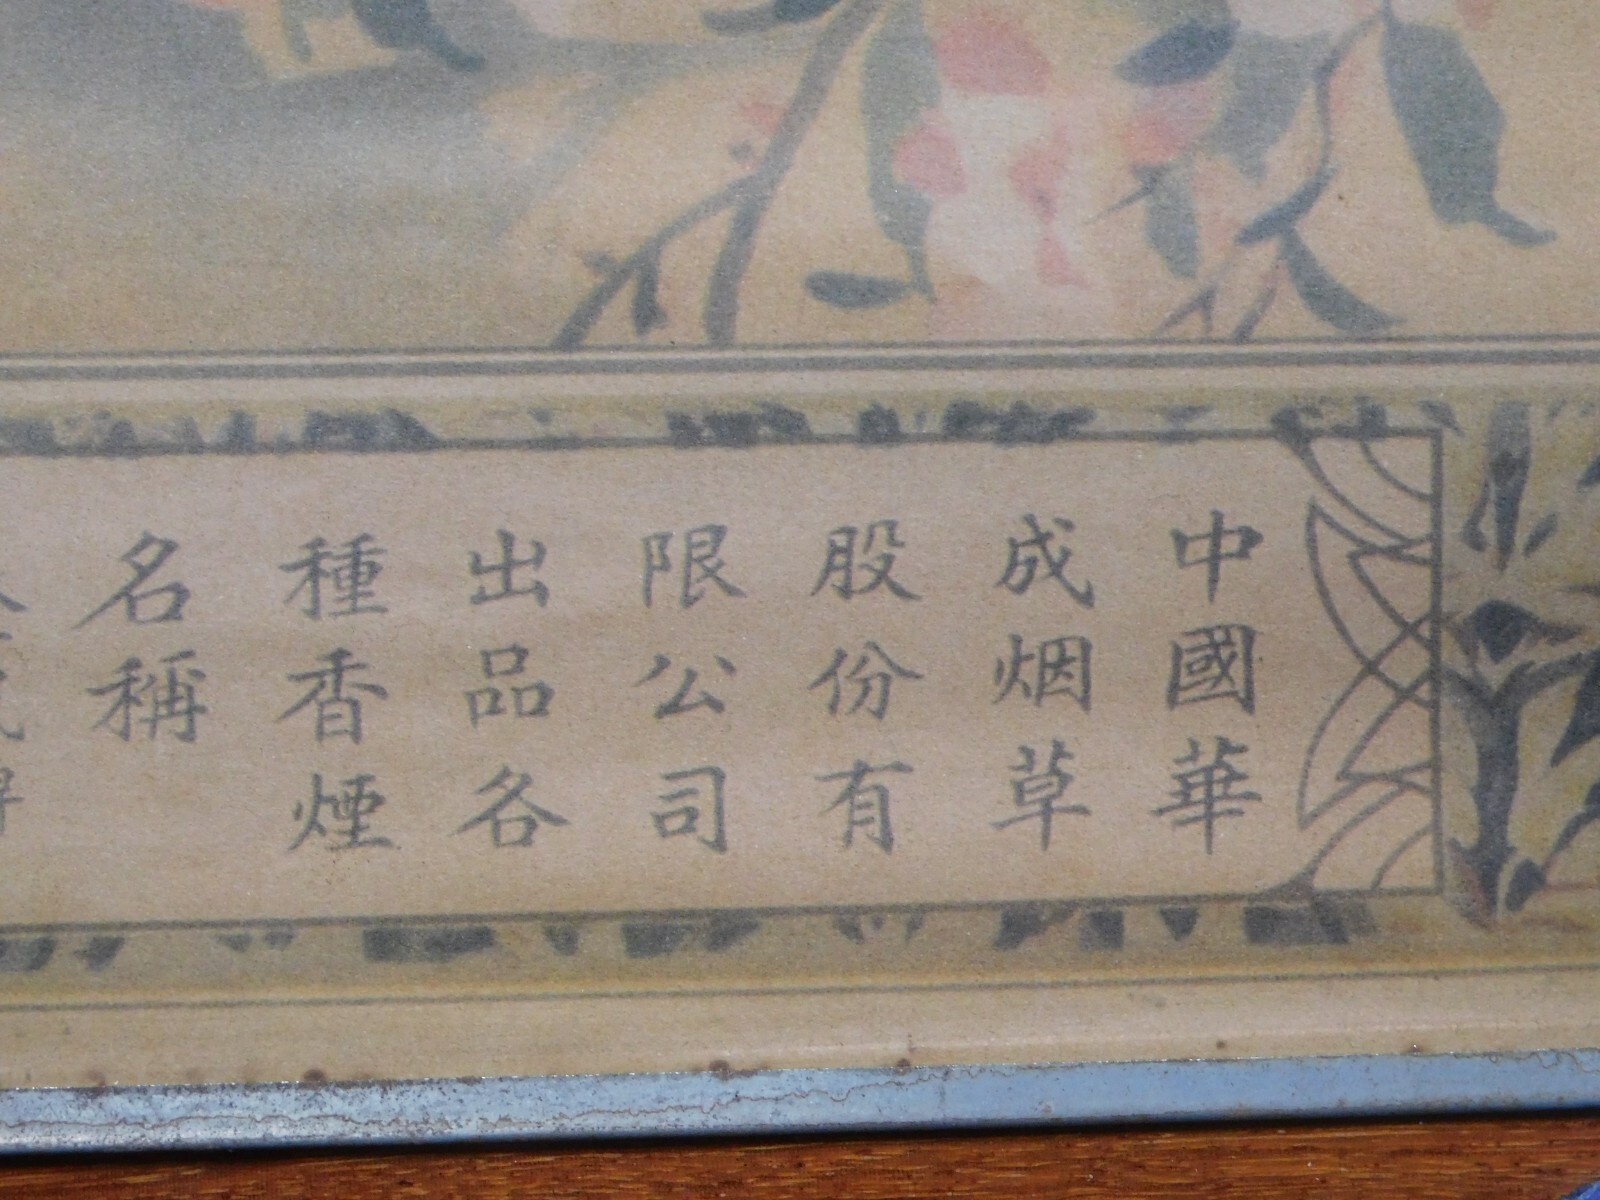 中國華
成烟草
股份有
限公司
出品各
種香煙
名稱